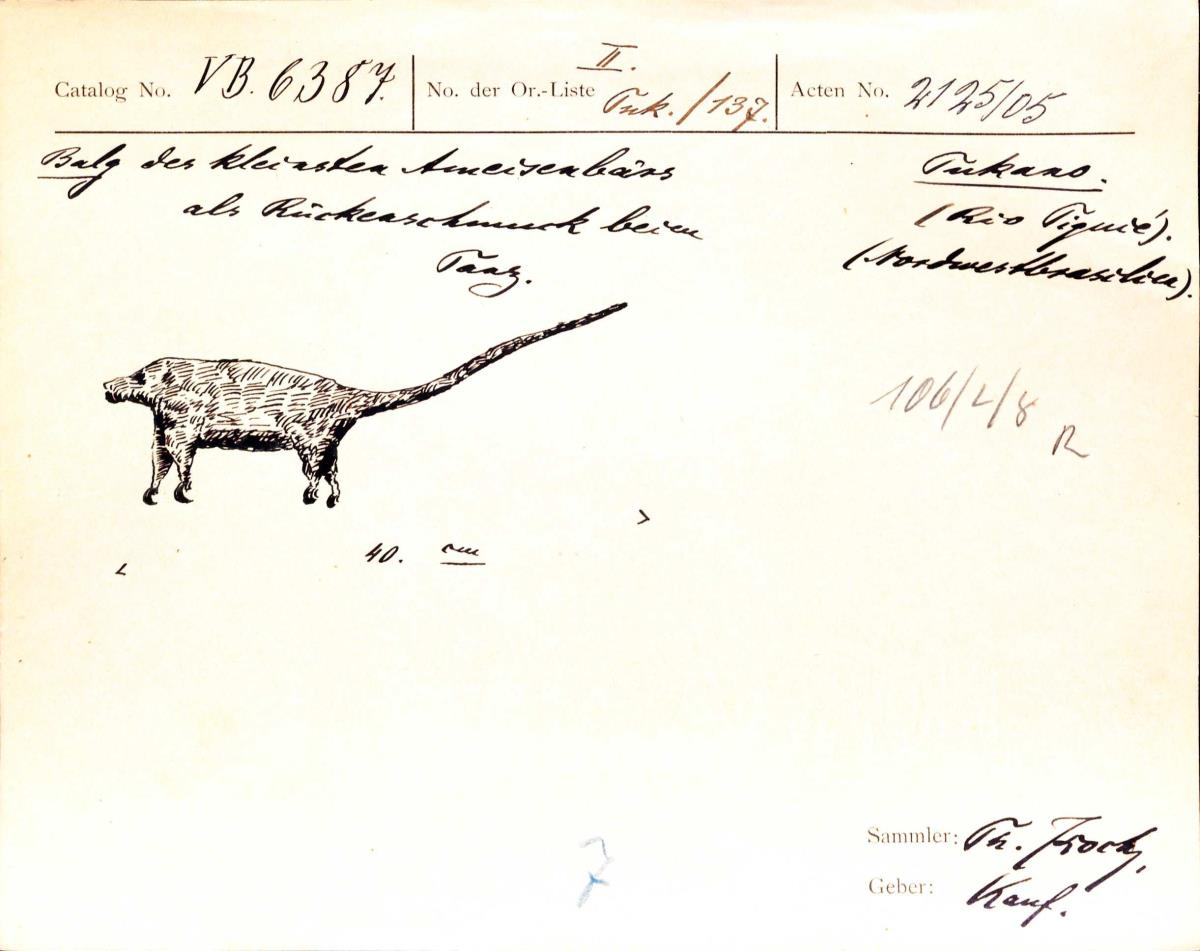 Catalog No. VB. 6387.
No. der Or.-Liste II. Tuk./137.
Acten No. 2125/05
Balg des kleinsten Ameisenbärs
als Rückenschmuck beim
Tanz.
Tukano.
(Rio Tiquié).
(Nordwestbrasilien).
106/2/8
R
< 40. cm >
7
Sammler: Th. Koch,
Geber: Kauf.